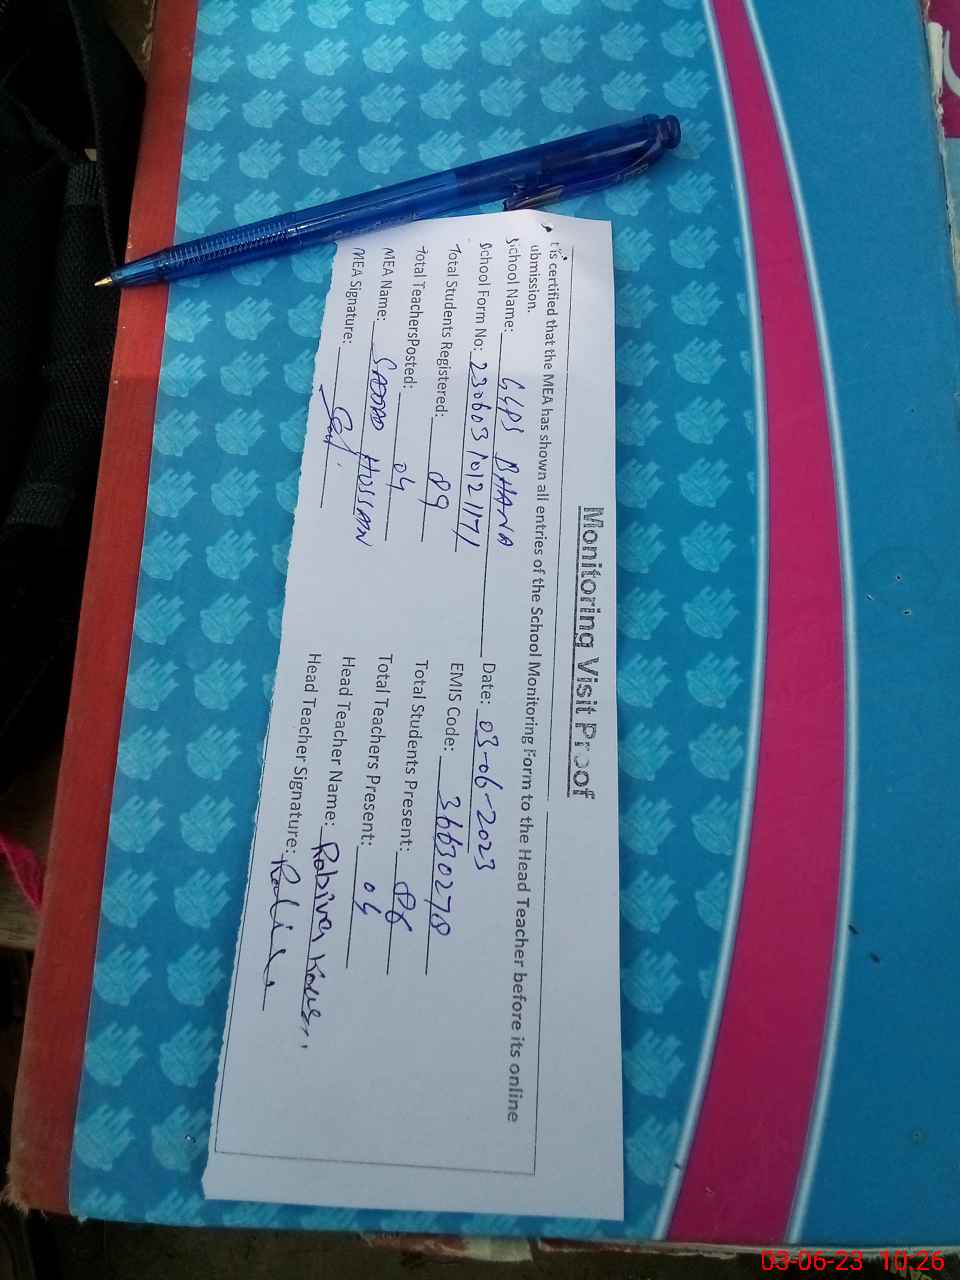 Monitoring Visit Proof
t is certified that the MEA has shown all entries of the School Monitoring Form to the Head Teacher before its online
ubmission.
School Name: GGPS BHANA Date: 03-06-2023
School Form No: 230603 1012 1171 EMIS Code: 36630278
Total Students Registered: 89 Total Students Present: 86
Total TeachersPosted: 04 Total Teachers Present: 04
MEA Name: HUSSAIN Head Teacher Name: Robina
MEA Signature: Head Teacher Signature:
03-06-23 10:26